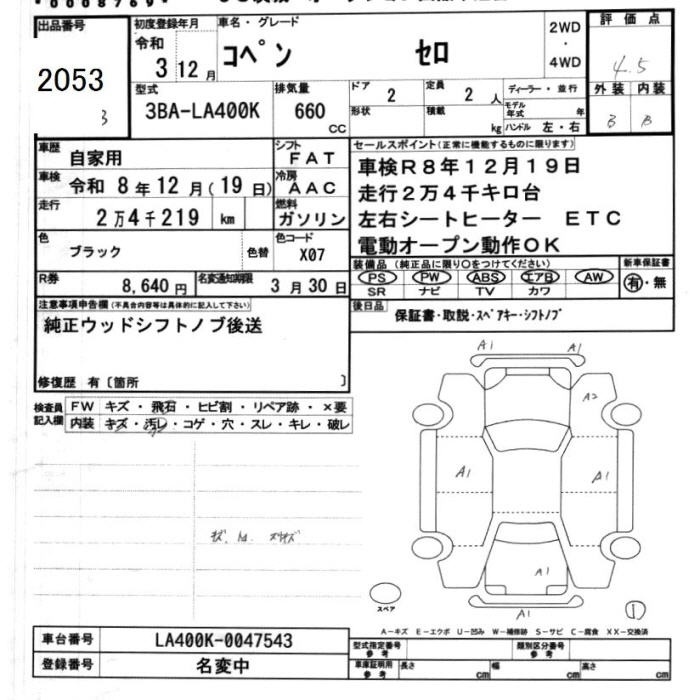 *0008769*
出品番号
2053
3
初度登録年月
令和
3 12月
車名・グレード
コペン セロ
2WD
・
4WD
評価点
4.5
外装 内装
B B
型式
3BA-LA400K
排気量
660
CC
ドア
2
形状
定員
2 人
積載
kg
ディーラー・並行
モデル年式 年
ハンドル 左・右
車歴 自家用
シフト FAT
車検 令和 8年12月(19日)
冷房 AAC
走行 2万4千219 km
燃料 ガソリン
色 ブラック 色替
色コード X07
R券 8,640円
名変通知期限 3月30日
セールスポイント(正常に機能するものに限ります)
車検R8年12月19日
走行2万4千キロ台
左右シートヒーター ETC
電動オープン動作OK
装備品(純正品に限り〇をつけてください)
PS PW ABS エアB AW
SR ナビ TV カワ
新車保証書
有・無
後日品 保証書・取説・スペアキー・シフトノブ
注意事項申告欄(不具合内容等は具体的に記入して下さい)
純正ウッドシフトノブ後送
修復歴 有〔箇所 〕
検査員記入欄
FW キズ・飛石・ヒビ割・リペア跡・×要
内装 キズ・汚レ・コゲ・穴・スレ・キレ・破レ
A1 A1
A2
A1 A1
A1
A1
スペア
1
A-キズ E-エクボ U-凹み W-補修跡 S-サビ C-腐食 XX-交換済
車台番号 LA400K-0047543
登録番号 名変中
型式指定番号 参考
類別区分番号 参考
車庫証明用 参考
長さ cm 幅 cm 高さ cm